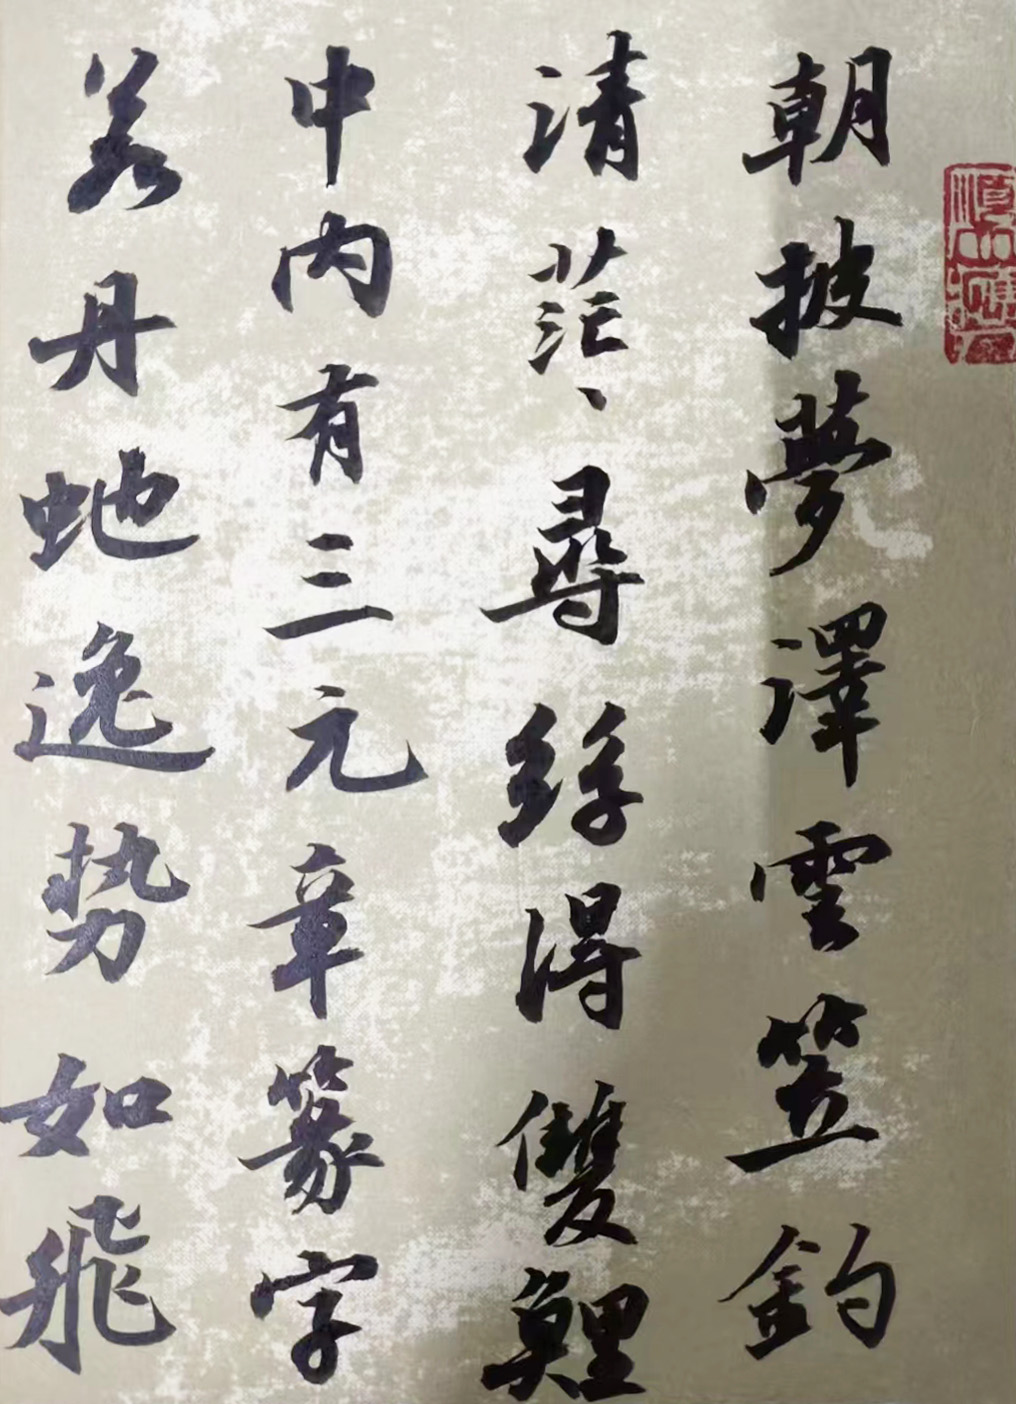 朝披夢澤雲笠釣
清茫、尋絲得雙鯉
中内有三元章篆字
若丹虵逸势如飛